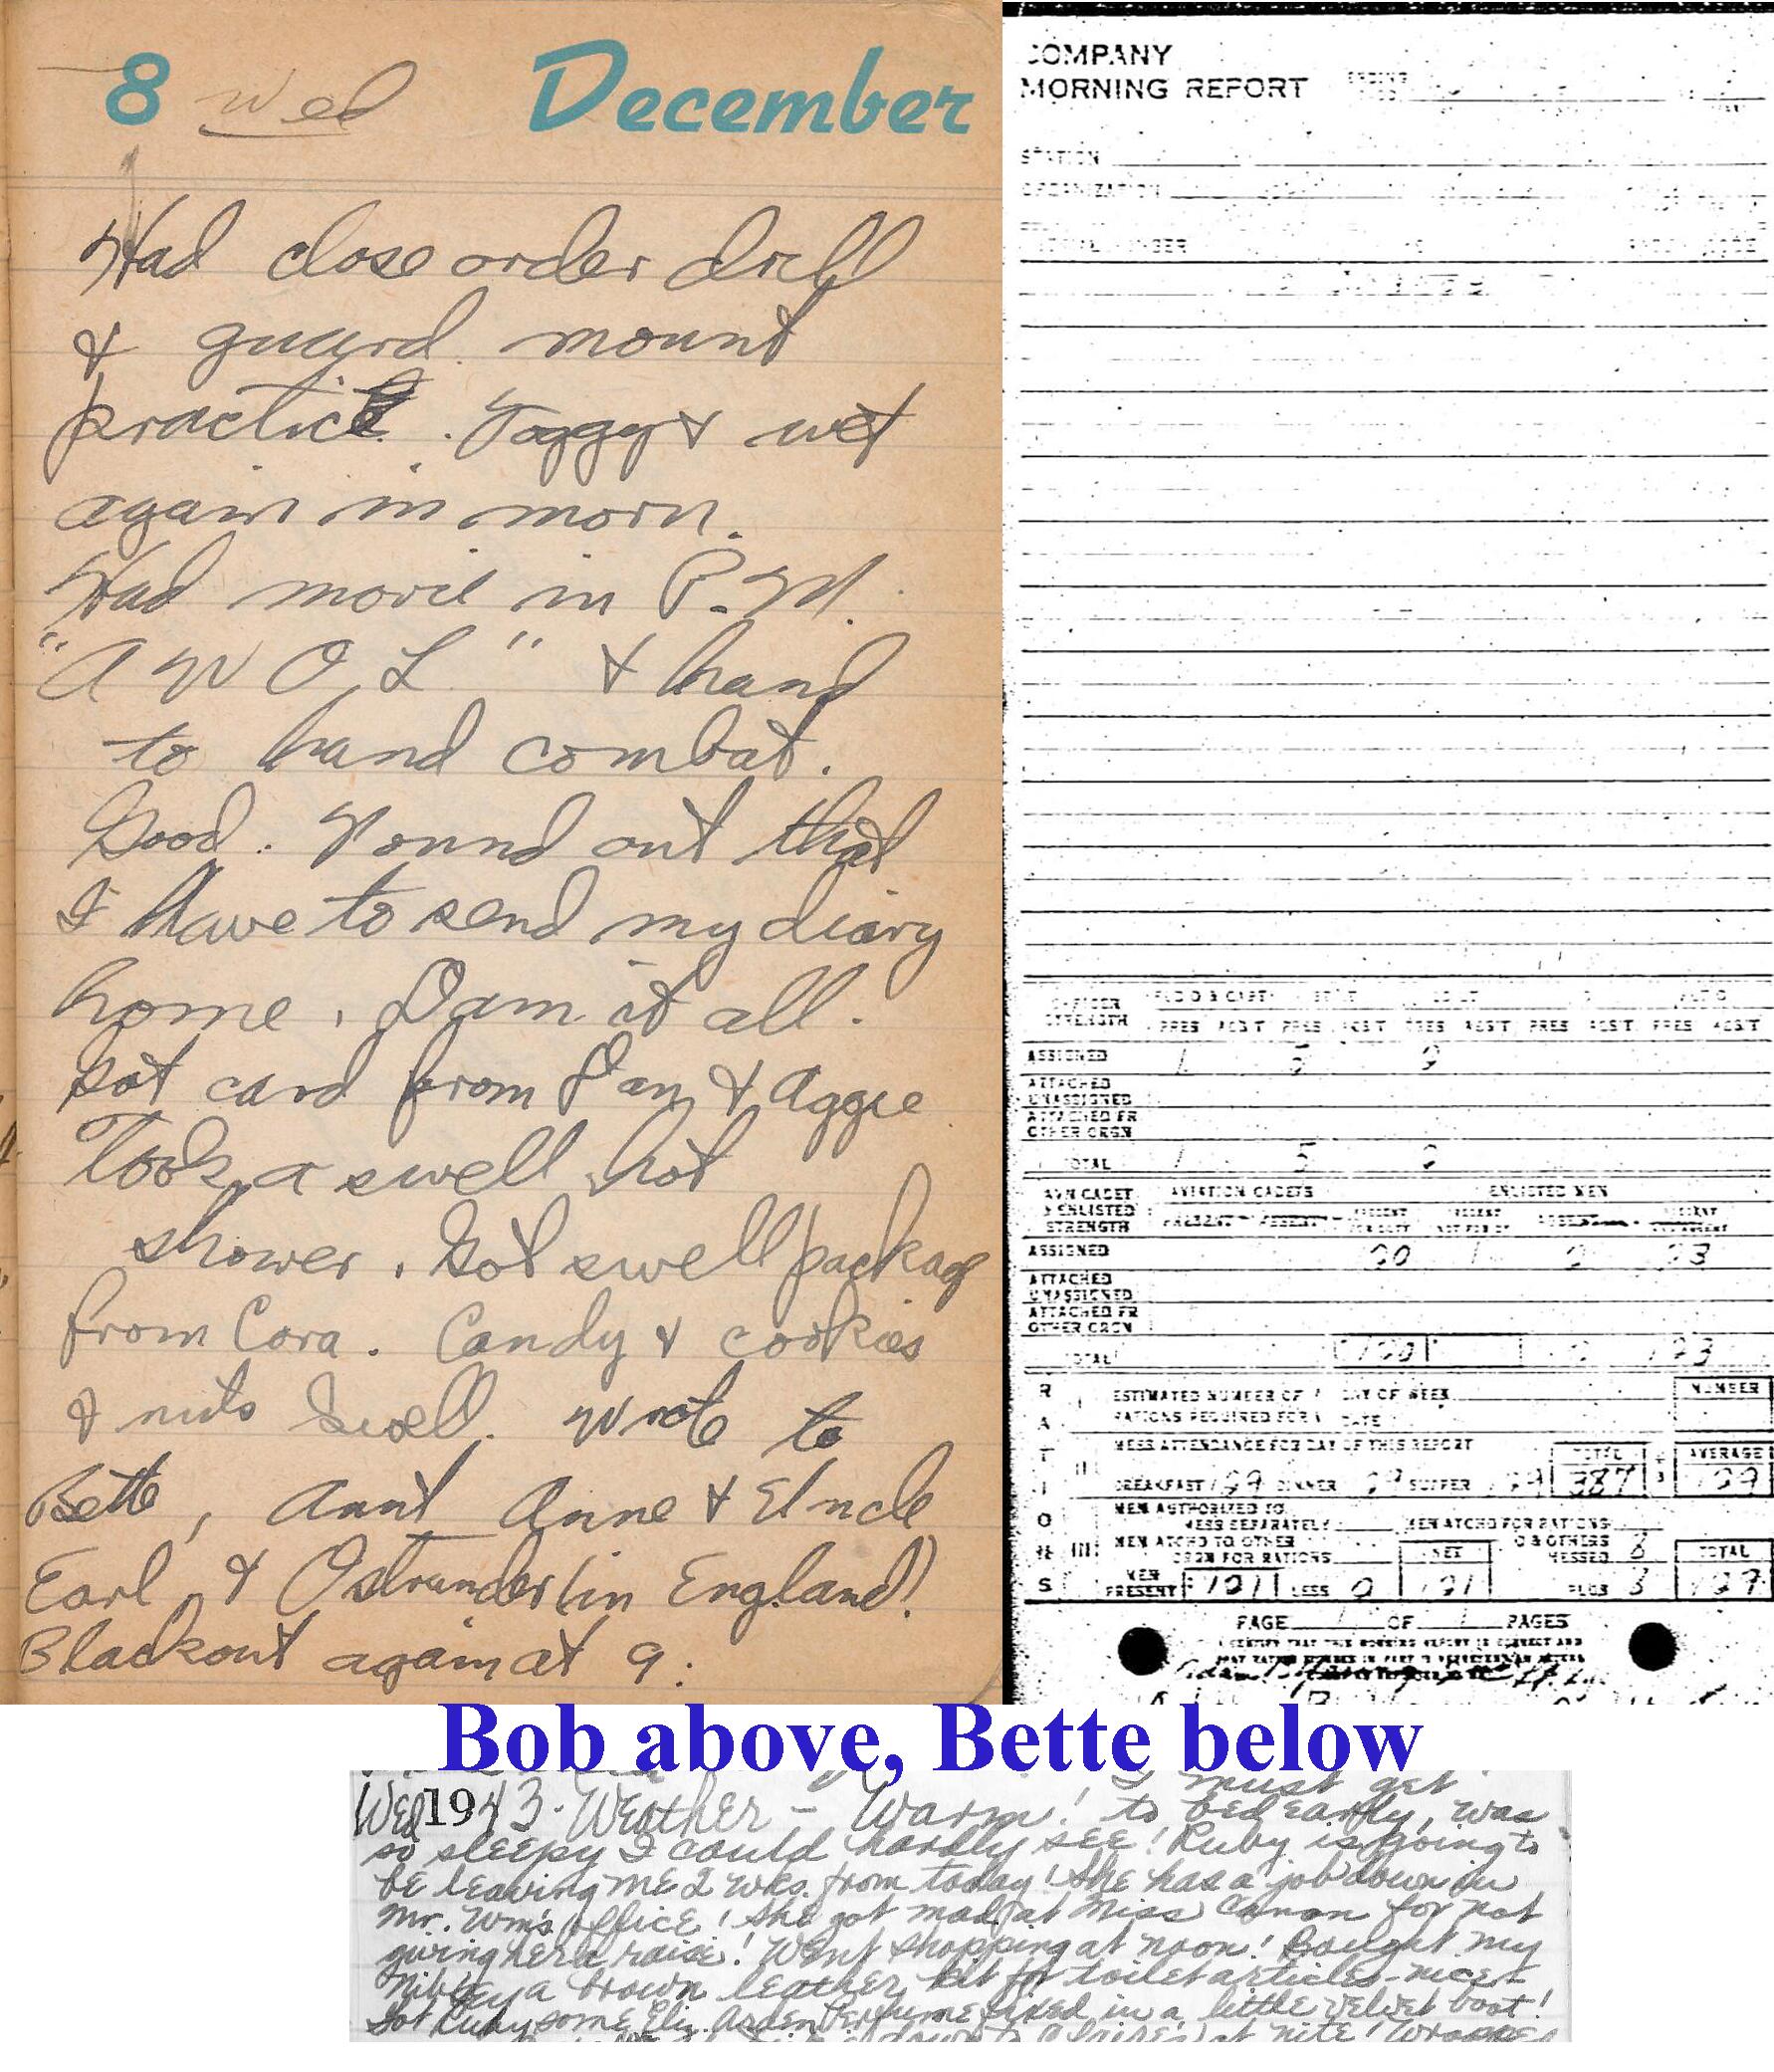 8 Wed December
Had close order drill
& guard mount
practice. Foggy & wet
again in morn.
Had movie in P.M.
"A W O L" & hand
to hand combat.
Good. Found out that
I have to send my diary
home. Dam it all.
Got card from Dan & Aggie
Took a swell hot
shower. Got swell package
from Cora. Candy & cookies
& nuts Swell. Wrote to
Bette, Aunt Anne & Uncle
Earl & Ostrander (in England)
Blackout again at 9.
COMPANY
MORNING REPORT ENDING
STATION
ORGANIZATION
SERIAL NUMBER
OFFICER STRENGTH
PRES ABS'T PRES ABS'T PRES ABS'T PRES ABS'T PRES ABS'T
ASSIGNED 1 5
ATTACHED
UNASSIGNED
ATTACHED FR
OTHER ORGN
TOTAL 1 5
AVN CADET AVIATION CADETS ENLISTED MEN
& ENLISTED
STRENGTH
ASSIGNED
ATTACHED
UNASSIGNED
ATTACHED FR
OTHER ORGN
TOTAL
R ESTIMATED NUMBER OF DAY OF WEEK NUMBER
A RATIONS REQUIRED FOR DATE
T MESS ATTENDANCE FOR DAY OF THIS REPORT TOTAL AVERAGE
I BREAKFAST 129 DINNER 129 SUPPER 129 387 129
O MEN AUTHORIZED TO
MESS SEPARATELY MEN ATCHD FOR RATIONS
N III MEN ATCHD TO OTHER & OTHERS
ORGN FOR RATIONS NET MESSED 8 TOTAL
S MEN PRESENT 121 LESS 0 121 PLUS 8 129
PAGE 1 OF 1 PAGES
I CERTIFY THAT THIS MORNING REPORT IS CORRECT AND
Bob above, Bette below
I must get
Wed 1943 - Weather - Warm! to bed early, was
so sleepy I could hardly see! Ruby is going to
be leaving me 2 wks. from today! She has a job down in
Mr. Wm's office! She got mad at Miss Canan for not
giving her a raise! Went shopping at noon! Bought my
a brown leather kit for toilet articles - nice -
Got Ruby some Eliz. Arden Perfume fixed in a little velvet boot!
down to Claire's at nite! Wrapped